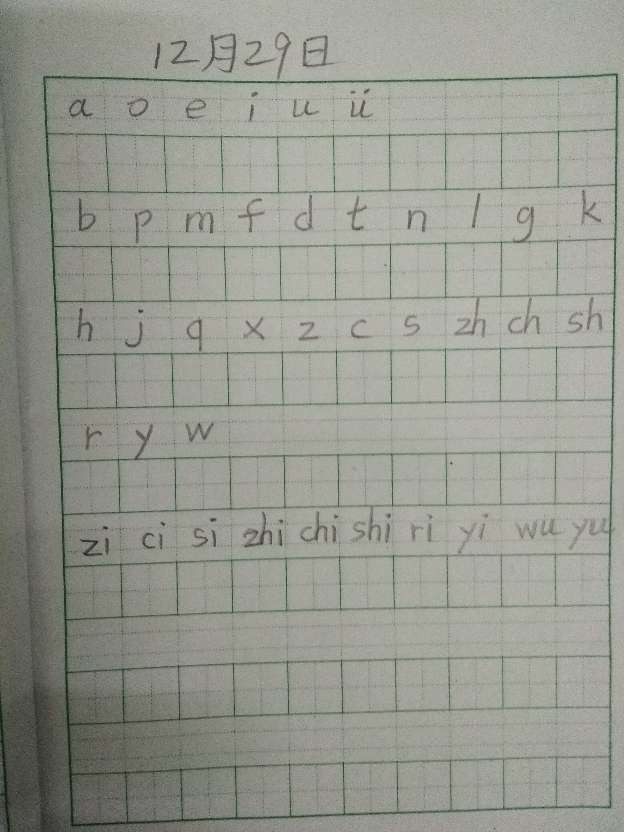 12月29日
a o e i u ü
b p m f d t n l g k
h j q x z c s zh ch sh
r y w
zi ci si zhi chi shi ri yi wu yu